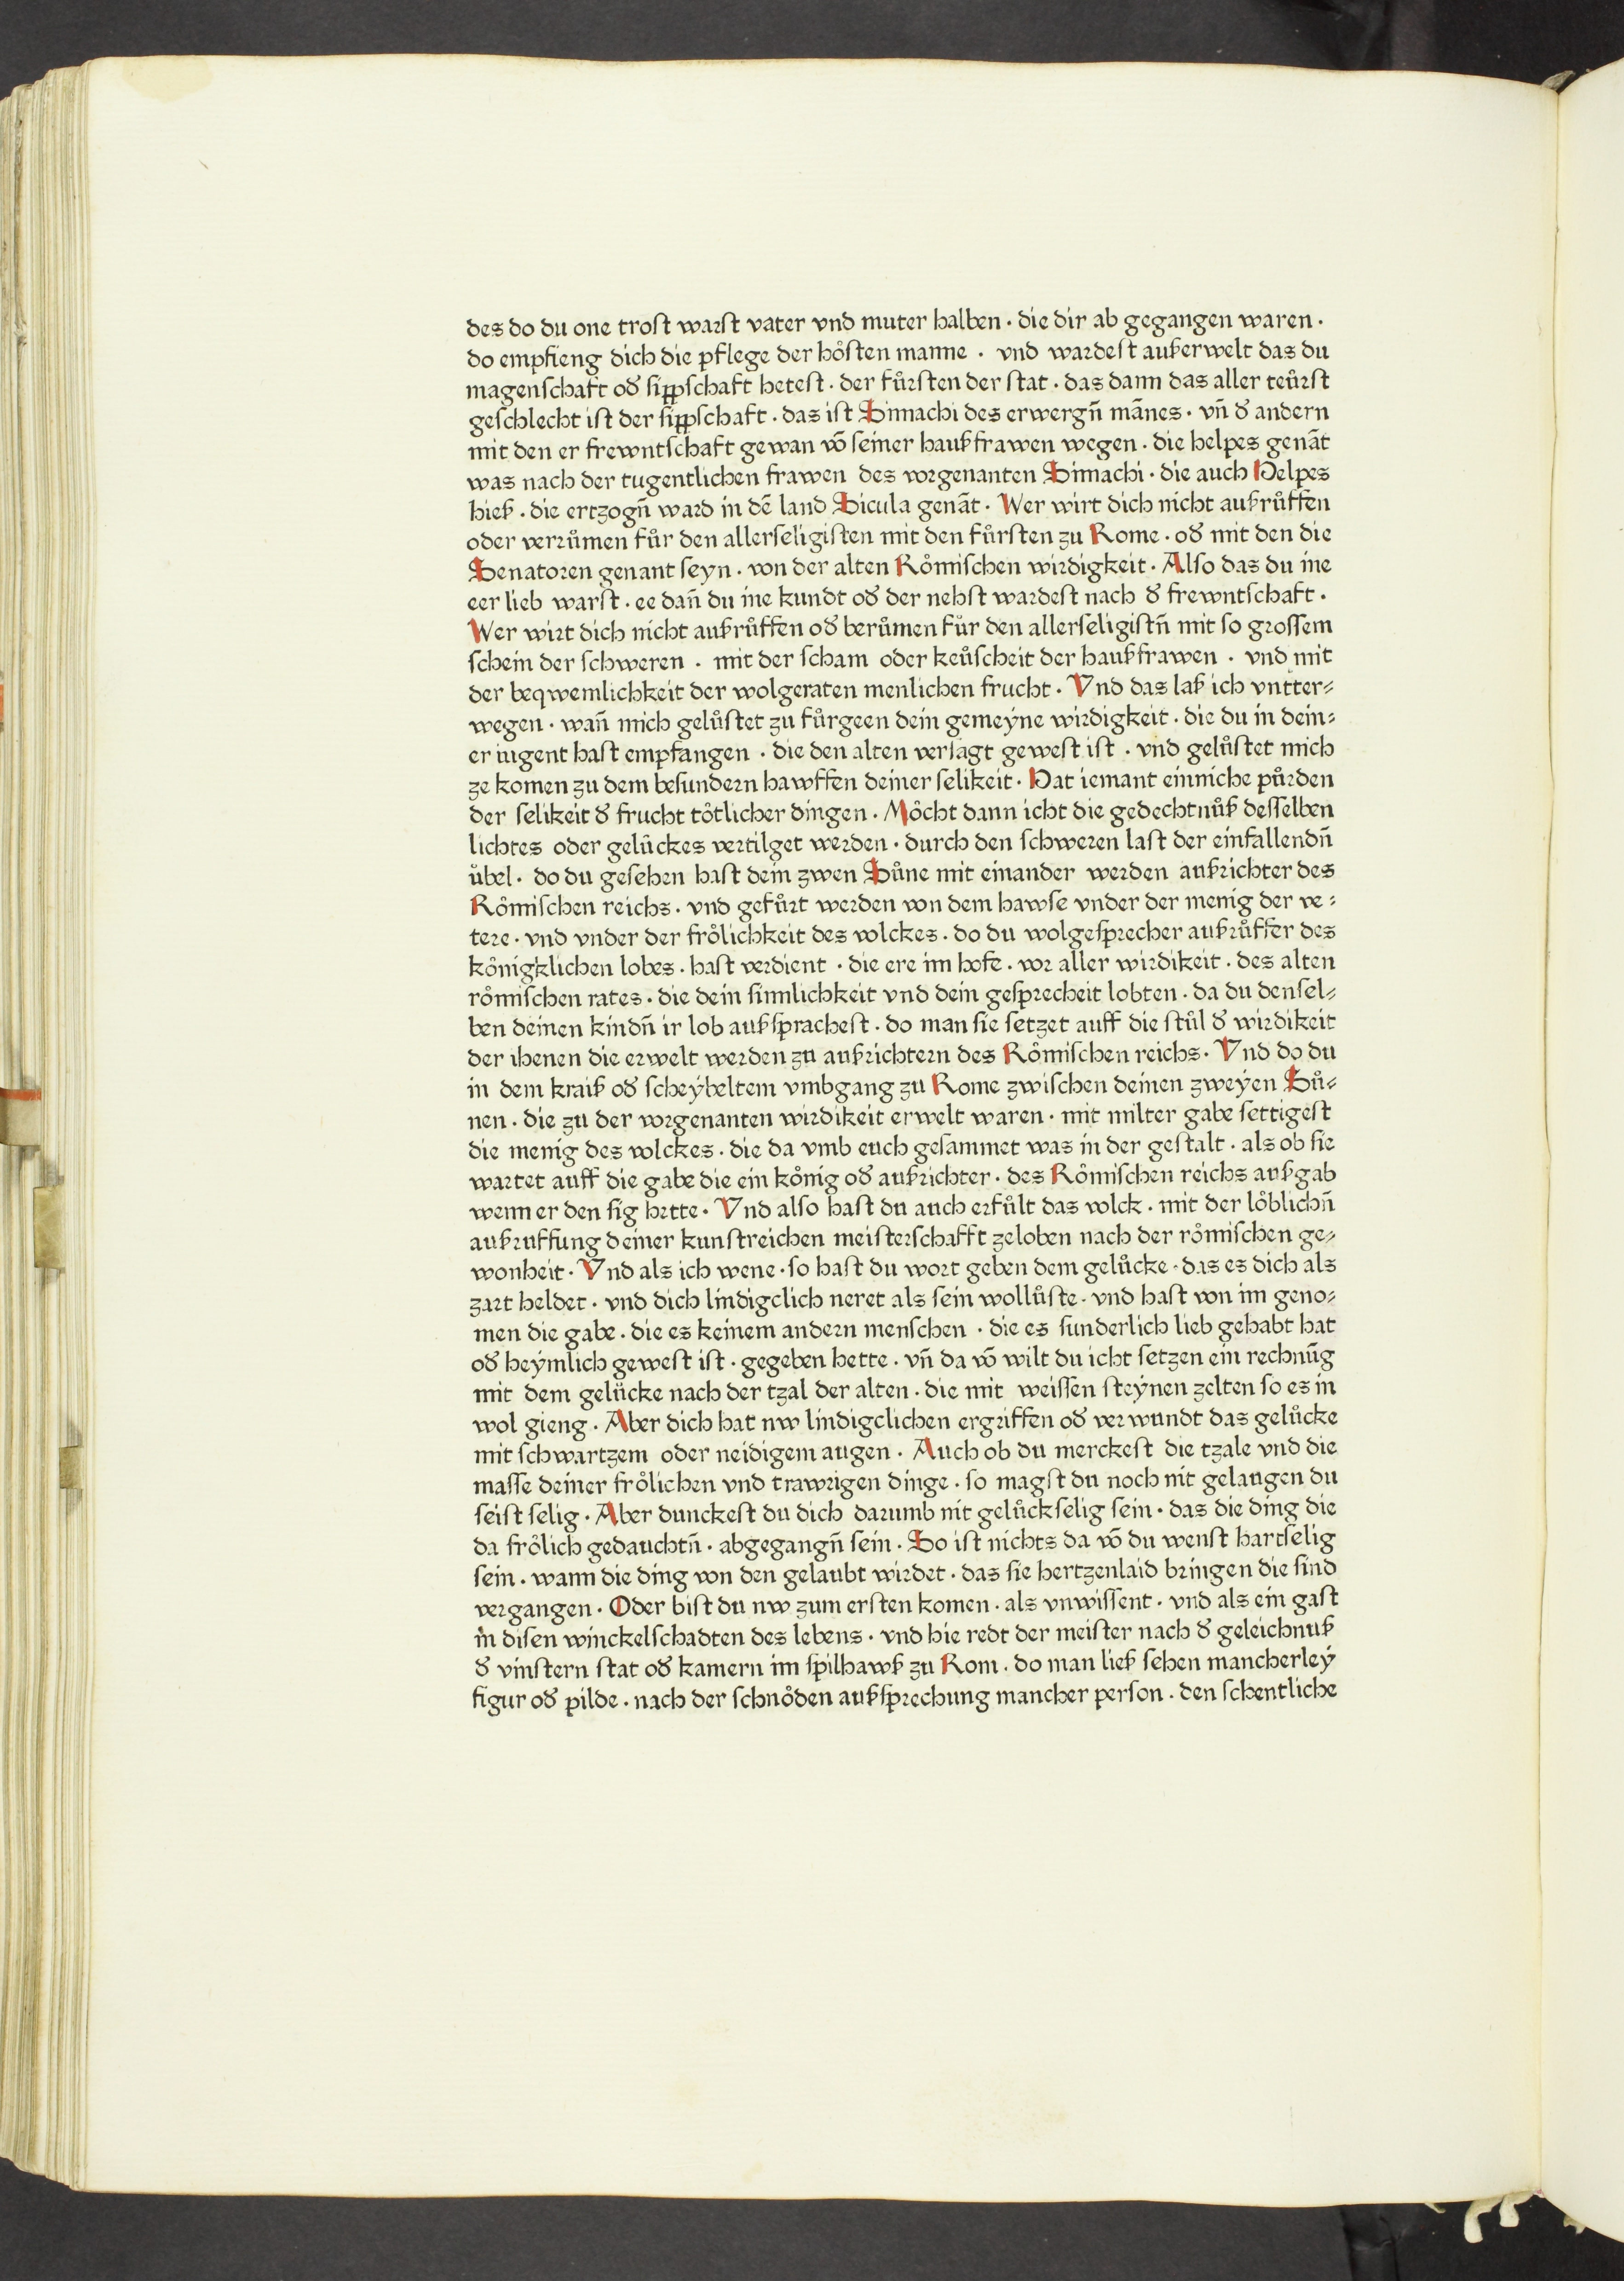 des do du one trost warst vater vnd muter halben · die dir ab gegangen waren ·
do empfieng dich die pflege der hoͤsten manne · vnd wardest außerwelt das du
magenschaft oð sippschaft hetest · der fuͤrsten der stat · das dann das aller teuͤrst
geschlecht ist der sippschaft · das ist Simachi des erwergn̄ mānes · vn̄ ð andern
mit den er frewntschaft gewan vō seiner haußfrawen wegen · die helpes genāt
was nach der tugentlichen frawen des vorgenanten Simachi · die auch Helpes
hieß · die ertzogn̄ ward in dē land Sicula genāt · Wer wirt dich nicht außruͤffen
oder verruͤmen fuͤr den allerseligisten mit den fuͤrsten zu Rome · oð mit den die
Senatoren genant seyn · von der alten Roͤmischen wirdigkeit · Also das du ine
eer lieb warst · ee dan̄ du ine kundt oð der nehst wardest nach ð frewntschaft ·
Wer wirt dich nicht außruͤffen oð beruͤmen fuͤr den allerseligistn̄ mit so grossem
schein der schweren · mit der scham oder keuͤscheit der haußfrawen · vnd mit
der beqwemlichkeit der wolgeraten menlichen frucht · Vnd das laß ich vntter⸗
wegen · wan̄ mich geluͤstet zu fuͤrgeen dein gemeyne wirdigkeit · die du in dein⸗
er iugent hast empfangen · die den alten versagt gewest ist · vnd geluͤstet mich
ze komen zu dem besundern hawffen deiner selikeit · Hat iemant einniche puͤrden
der selikeit ð frucht toͤtlicher dingen · Moͤcht dann icht die gedechtnuͤß desselben
lichtes oder geluͤckes vertilget werden · durch den schweren last der einfallendn̄
uͤbel · do du gesehen hast dein zwen Suͤne mit einander werden außrichter des
Roͤmischen reichs · vnd gefuͤrt werden von dem hawse vnder der menig der ve⸗
tere · vnd vnder der froͤlichkeit des volckes · do du wolgesprecher außruͤffer des
koͤnigklichen lobes · hast verdient · die ere im hofe · vor aller wirdikeit · des alten
roͤmischen rates · die dein sinnlichkeit vnd dein gesprecheit lobten · da du densel⸗
ben deinen kindn̄ ir lob außsprachest · do man sie setzet auff die stuͤl ð wirdikeit
der ihenen die erwelt werden zu außrichtern des Roͤmischen reichs · Vnd do du
in dem kraiß oð scheybeltem vmbgang zu Rome zwischen deinen zweyen Suͤ⸗
nen · die zu der vorgenanten wirdikeit erwelt waren · mit milter gabe settigest
die menig des volckes · die da vmb euch gesammet was in der gestalt · als ob sie
wartet auff die gabe die ein koͤnig oð außrichter · des Roͤmischen reichs außgab
wenn er den sig hette · Vnd also hast du auch erfuͤlt das volck · mit der loͤblichn̄
außruffung deiner kunstreichen meisterschafft zeloben nach der roͤmischen ge⸗
wonheit · Vnd als ich wene · so hast du wort geben dem geluͤcke · das es dich als
zart heldet · vnd dich lindigclich neret als sein wolluͤste · vnd hast von im geno⸗
men die gabe · die es keinem andern menschen · die es sunderlich lieb gehabt hat
oð heymlich gewest ist · gegeben hette · vn̄ da vō wilt du icht setzen ein rechnūg
mit dem geluͤcke nach der tzal der alten · die mit weissen steynen zelten so es in
wol gieng · Aber dich hat nw lindigclichen ergriffen oð verwundt das geluͤcke
mit schwartzem oder neidigem augen · Auch ob du merckest die tzale vnd die
masse deiner froͤlichen vnd trawrigen dinge · so magst du noch nit gelaugen du
seist selig · Aber dunckest du dich darumb nit geluͤckselig sein · das die ding die
da froͤlich gedauchtn̄ · abgegangn̄ sein · So ist nichts da vō du wenst hartselig
sein · wann die ding von den gelaubt wirdet · das sie hertzenlaid bringen die sind
vergangen · Oder bist du nw zum ersten komen · als vnwissent · vnd als ein gast
in disen winckelschadten des lebens · vnd hie redt der meister nach ð geleichnuß
ð vinstern stat oð kamern im spilhawß zu Rom · do man ließ sehen mancherley
figur oð pilde · nach der schnoͤden außsprechung mancher person · den schentliche